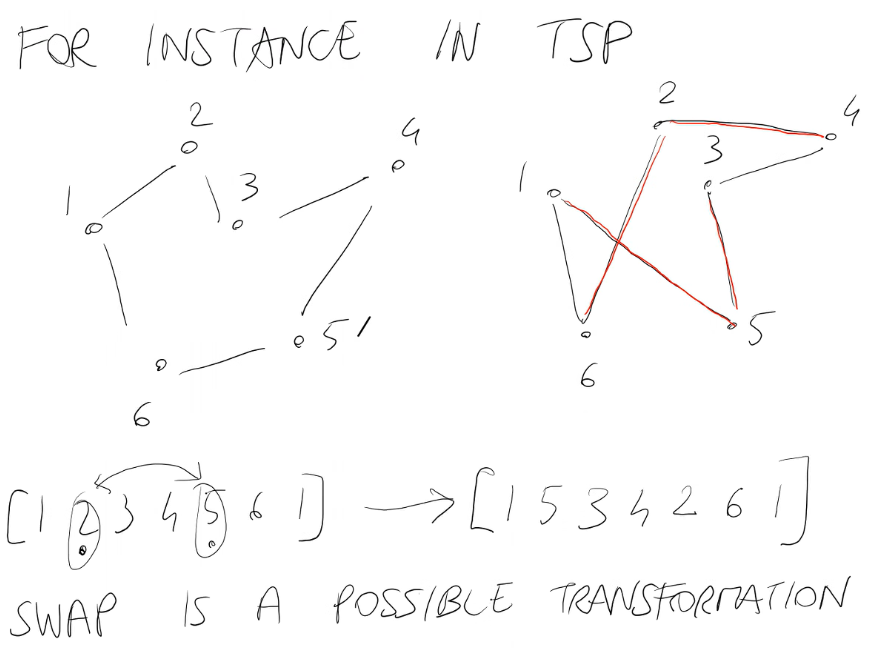 FOR INSTANCE IN TSP
2
4
3
1
5
6
2
4
3
1
5
6
[1 2 3 4 5 6 1] → [1 5 3 4 2 6 1]
SWAP IS A POSSIBLE TRANSFORMATION